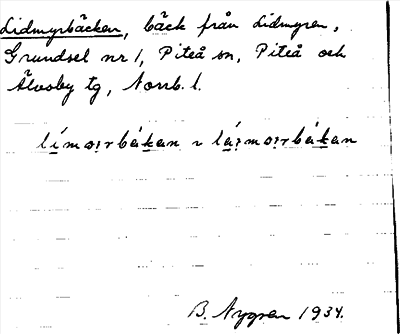 Lidmyrbäcken, bäck från Lidmyren,
Grundsel nr 1, Piteå sn, Piteå och
Älvsby tg, Norrb. l.
límọrbákan ~ lá̤mọrbákan
B. Nygren 1934.